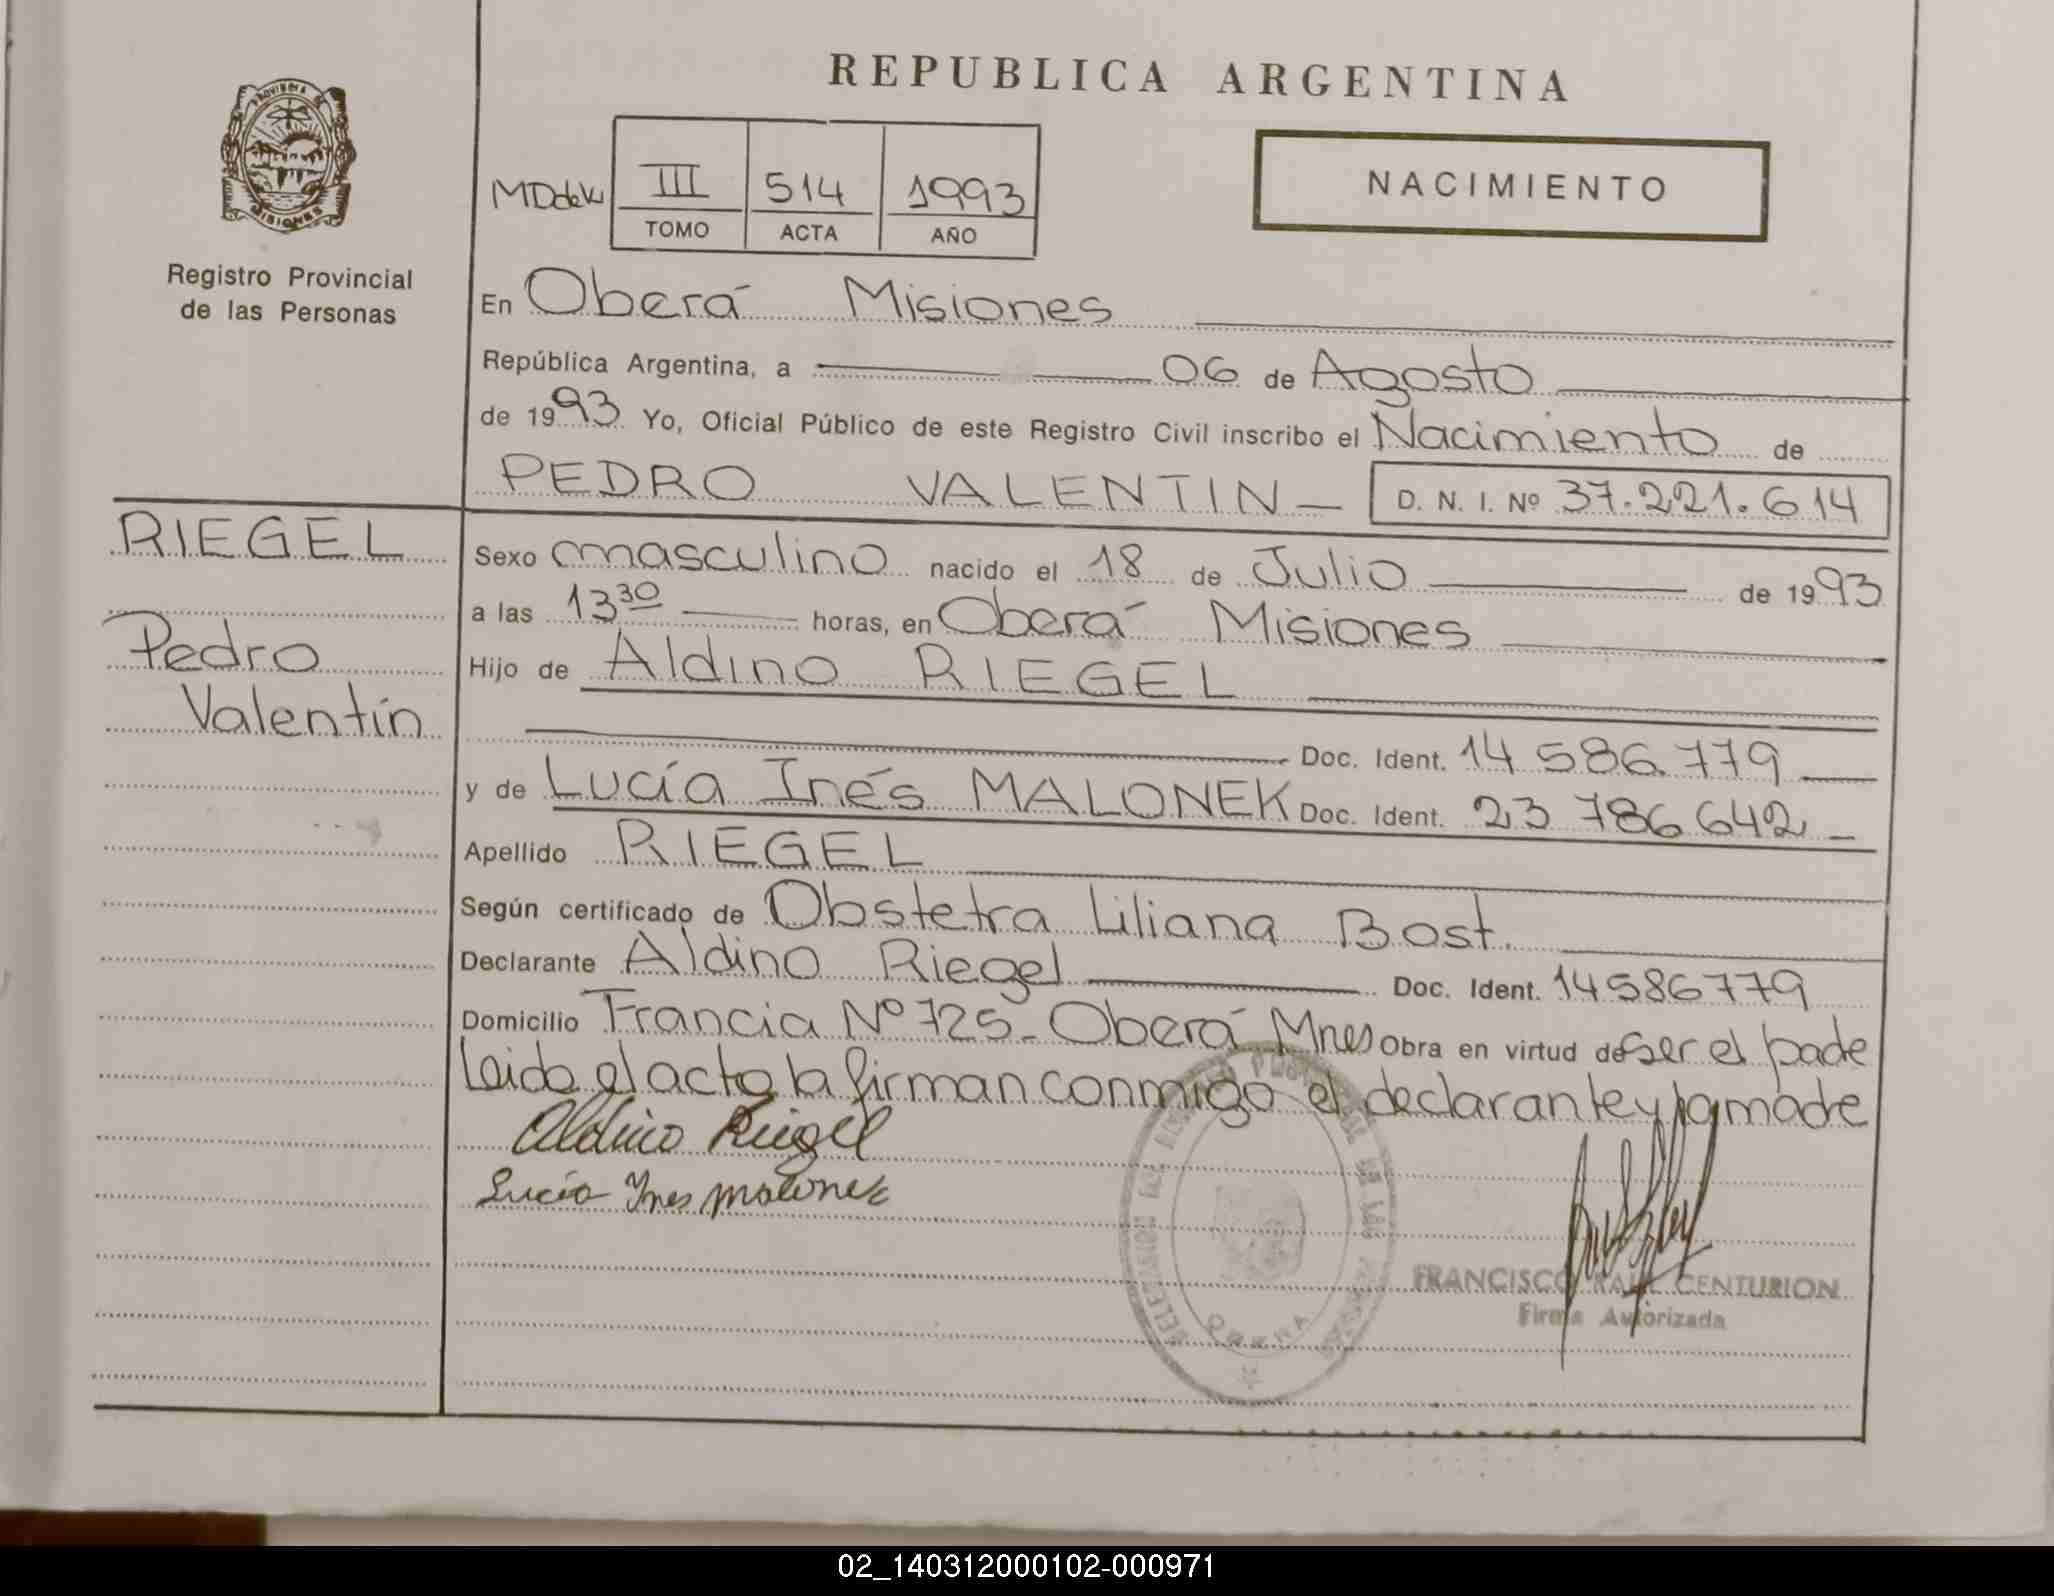 REPUBLICA ARGENTINA
PROVINCIA DE
MISIONES
Registro Provincial
de las Personas
III 514 1993
TOMO ACTA AÑO
NACIMIENTO
En Oberá Misiones
República Argentina, a 06 de Agosto
de 1993 Yo, Oficial Público de este Registro Civil inscribo el Nacimiento de
PEDRO VALENTIN D. N. I. Nº 37.221.614
RIEGEL
Pedro
Valentín
Sexo masculino nacido el 18 de Julio de 1993
a las 13 30 horas, en Oberá Misiones
Hijo de Aldino RIEGEL
Doc. Ident. 14 586.779
y de Lucía Inés MALONEK Doc. Ident. 23 786 642
Apellido RIEGEL
Según certificado de Obstetra Liliana Bost.
Declarante Aldino Riegel Doc. Ident. 14586779
Domicilio Francia Nº 725- Oberá Mnes Obra en virtud de ser el padre
Leida el acta la firman conmigo el declarante y la madre
Aldino Riegel
Lucía Ines Malonek
OBERA
FRANCISCO RAUL CENTURION
Firma Autorizada
02_140312000102-000971